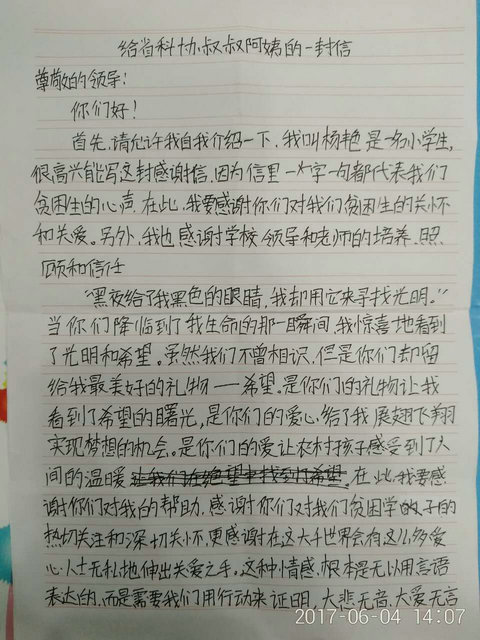 给省科协叔叔阿姨的一封信
尊敬的领导：
你们好！
首先，请允许我自我介绍一下，我叫杨艳是一名小学生，
很高兴能写这封感谢信，因为信里一个字一句都代表我们
贫困生的心声，在此，我要感谢你们对我们贫困生的关怀
和关爱。另外，我也感谢学校领导和老师的培养、照、
顾和信任
“黑夜给了我黑色的眼睛，我却用它来寻找光明。”
当你们降临到了我生命的那一瞬间，我惊喜地看到
了光明和希望。虽然我们不曾相识，但是你们却留
给我最美好的礼物——希望。是你们的礼物让我
看到了希望的曙光，是你们的爱心给了我展翅飞翔
实现梦想的机会。是你们的爱让农村孩子感受到了人
间的温暖让我们在绝望中找到了希望。在此，我要感
谢你们对我的帮助，感谢你们对我们贫困学子的
热切关注和深切关怀，更感谢在这大千世界会有这么多爱
心人士无私地伸出关爱之手。这种情感，根本是无以用言语
表达的，而是需要我们用行动来证明，大悲无音，大爱无言
2017-06-04 14:07